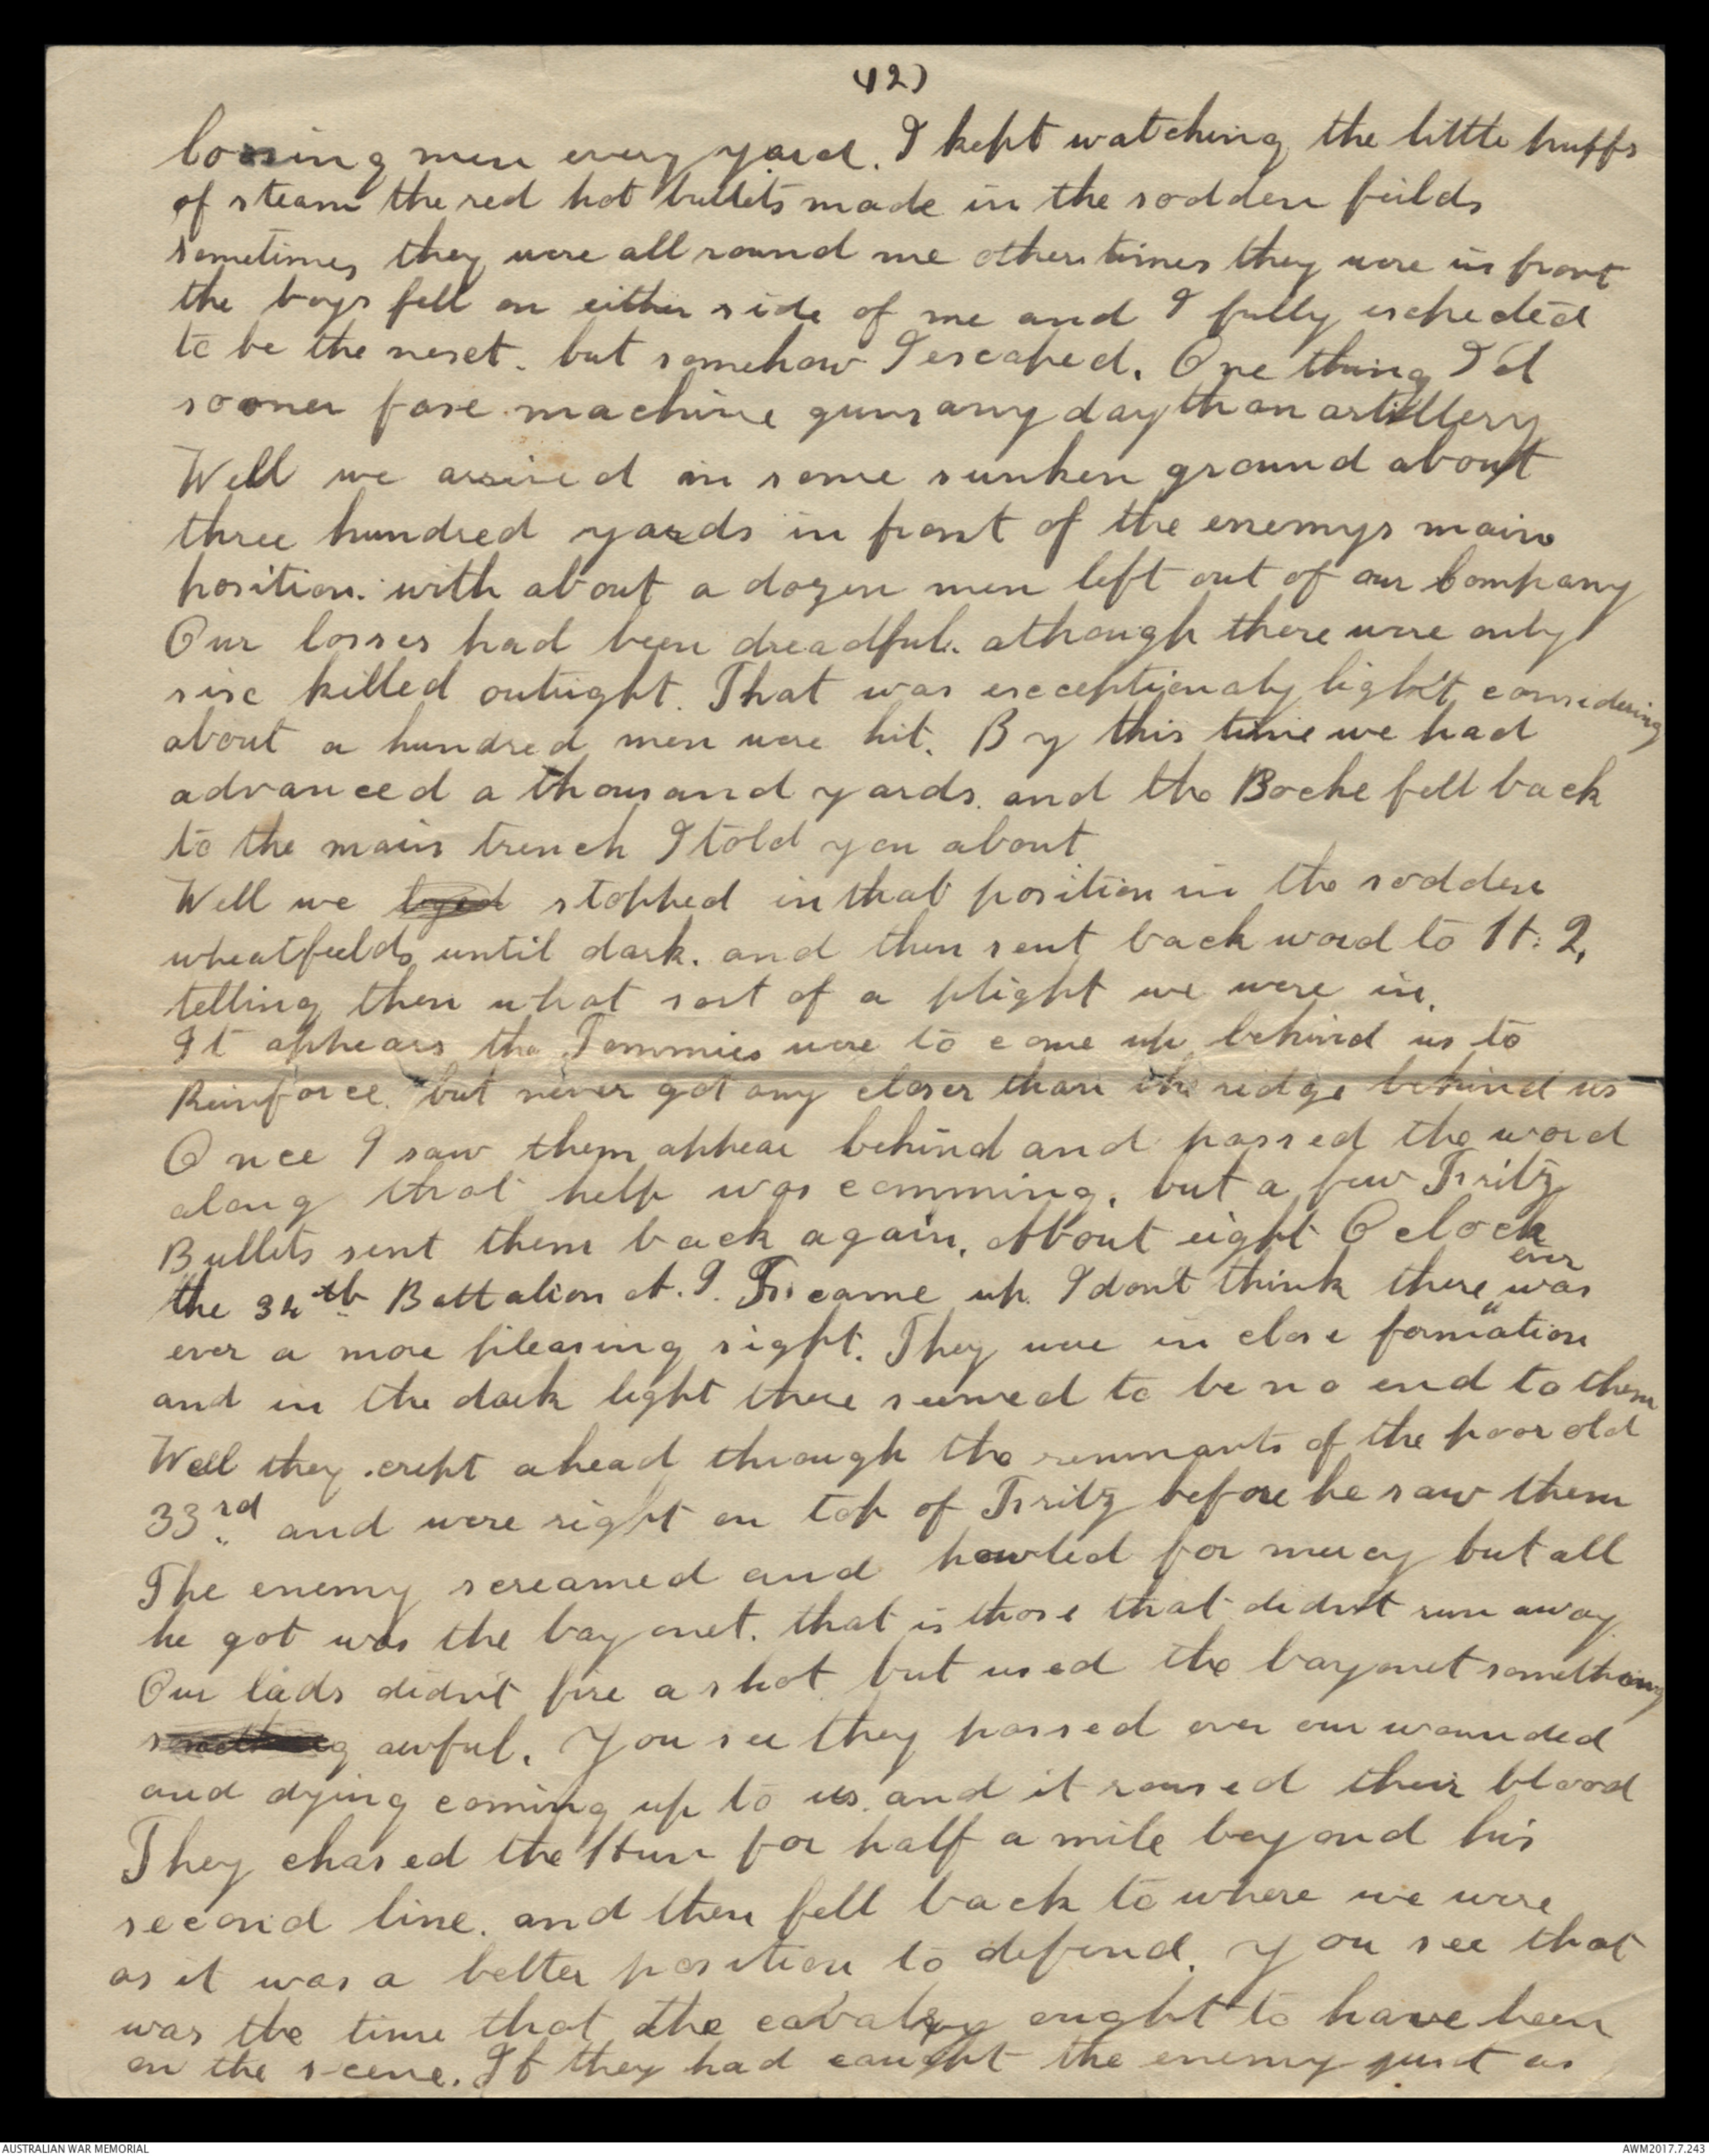 (12)
loosing men every yard. I kept watching the little puffs
of steam the red hot bullets made in the sodden feilds
sometimes they were all round me other times they were in front
the boys fell on either side of me and I fully expected
to be the next. but somehow I escaped. One thing I'd
sooner face machine guns any day than artillery
Well we arrived in some sunken ground about
three hundred yards in front of the enemys main
position. with about a dozen men left out of our Company
Our losses had been dreadful. athough there were only
six killed outright. That was exceptionaly light considering
about a hundred men were hit. By this time we had
advanced a thousand yards. and the Boche fell back
to the main trench I told you about
Well we stopped in that position in the sodden
wheatfeilds until dark. and then sent back word to H. Q.
telling them what sort of a plight we were in.
It appears the Tommies were to come up behind us to
Reinforce. but never got any closer than the ridge behind us
Once I saw them appear behind and passed the word
along that help was comming. but a few Fritz
Bullets sent them back again. About eight O clock
ever
the 34th Battalion A. I. F. came up. I don't think there was
ever a more pleasing sight. They were in close formation
and in the dark light there seemed to be no end to them
Well they crept ahead through the remnants of the poor old
33rd and were right on top of Fritz before he saw them
The enemy screamed and howled for mercy but all
he got was the bayonet. that is those that didn't run away.
Our lads didn't fire a shot but used the bayonet something
awful. You see they passed over our wounded
and dying coming up to us. and it roused their blood
They chased the Hun for half a mile beyond his
second line. and then fell back to where we were
as it was a better position to defend. You see that
was the time that the cavalry ought to have been
on the scene. If they had caught the enemy just as
AUSTRALIAN WAR MEMORIAL
AWM2017.7.243